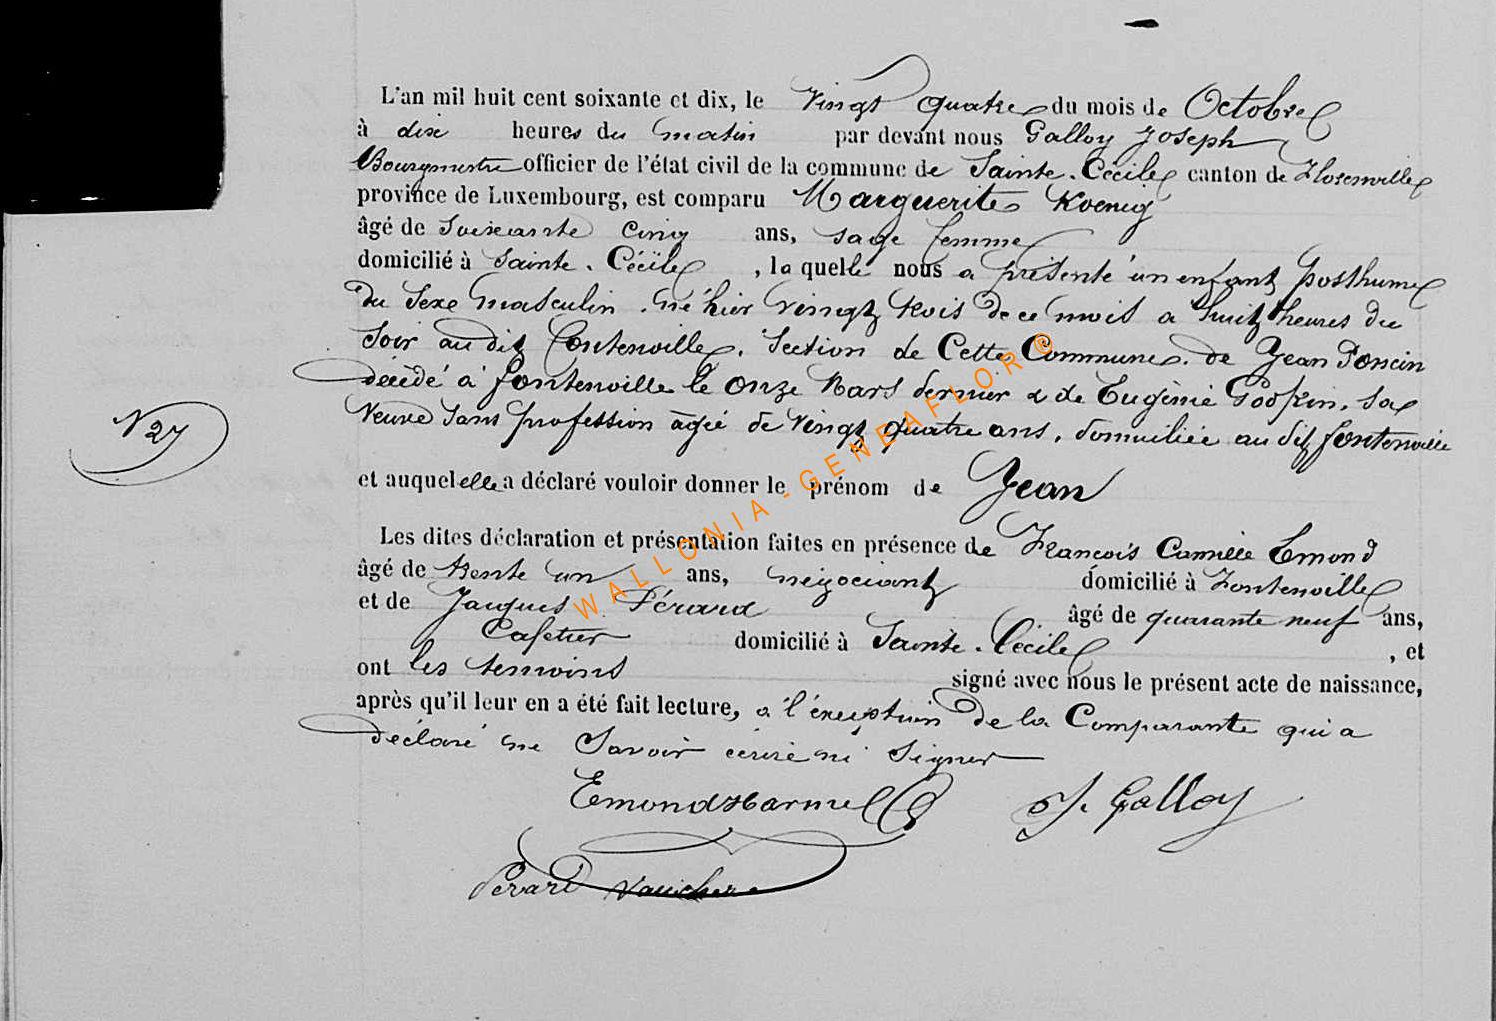 L'an mil huit cent soixante et dix, le Vingt quatre du mois de Octobre
à dix heures du matin par devant nous Galloy Joseph
Bourgmestre officier de l'état civil de la commune de Sainte-Cécile canton de Florenville
province de Luxembourg, est comparu Marguerite Koenig
âgé de Soixante cinq ans, sage femme
domicilié à Sainte-Cécile, laquelle nous a présenté un enfant posthume
du sexe masculin né hier vingt trois de ce mois a huit heures du
soir au dit Fontenville. Section de Cette Commune de Jean Poncin
décédé à fontenville le onze Mars dernier & de Eugénie sa
Veuve Sans profession agée de vingt quatre ans, domiciliée au dit fontenville
N 27
et auquel elle a déclaré vouloir donner le prénom de Jean
Les dites déclaration et présentation faites en présence de Francois Camille Emond
âgé de trente un ans, négociant domicilié à Fontenville
et de Jacques Pérard âgé de quarante neuf ans,
Cafetier domicilié à Sainte-Cécile, et
ont les temoins signé avec nous le présent acte de naissance,
après qu'il leur en a été fait lecture, a l'éxception de la Comparante qui a
déclaré ne Savoir écrire ni Signer
Emond Harmel J. Galloy
Perard
WALLONIA-GENEAFLOR®